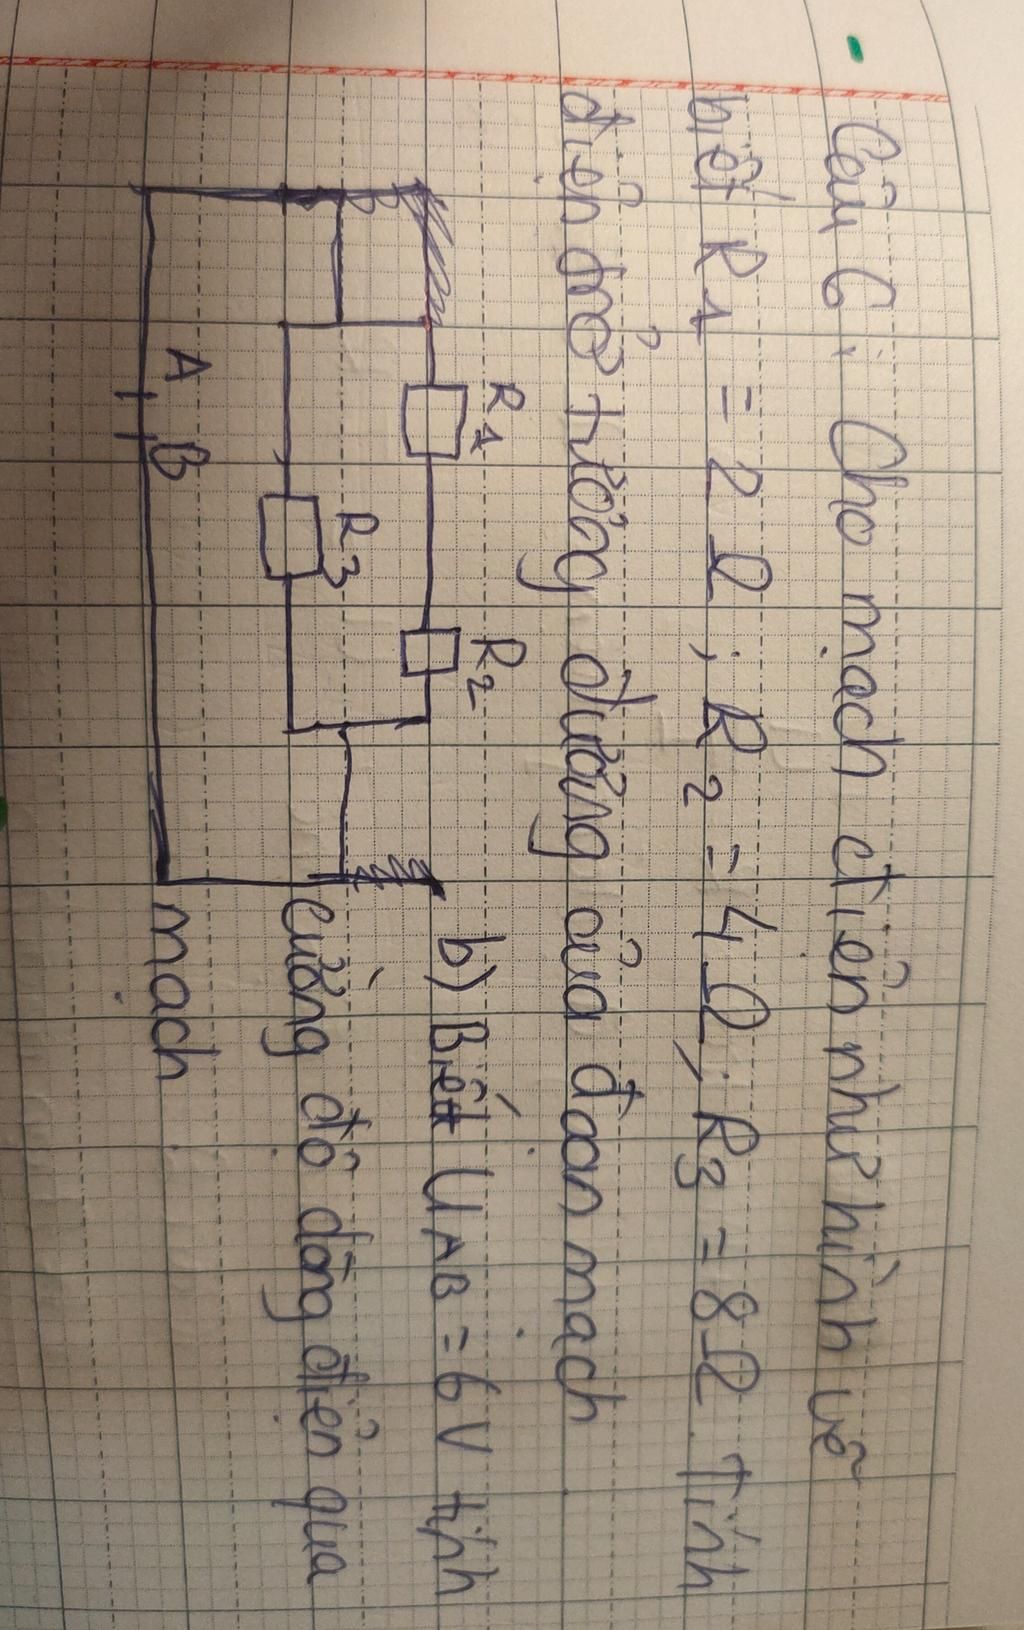 Câu 6: Cho mạch điện như hình vẽ
biết R1 = 2Ω; R2 = 4Ω; R3 = 8Ω. Tính
điện trở tương đương của đoạn mạch
R1 R2
R3
A B
b) Biết UAB = 6V tính
cường độ dòng điện qua
mạch